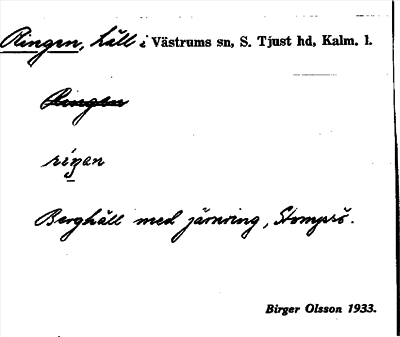 Ringen, häll i Västrums sn, S. Tjust hd, Kalm. l.
Ringen
rigan
Berghäll med järnring, Stompsö.
Birger Olsson 1933.